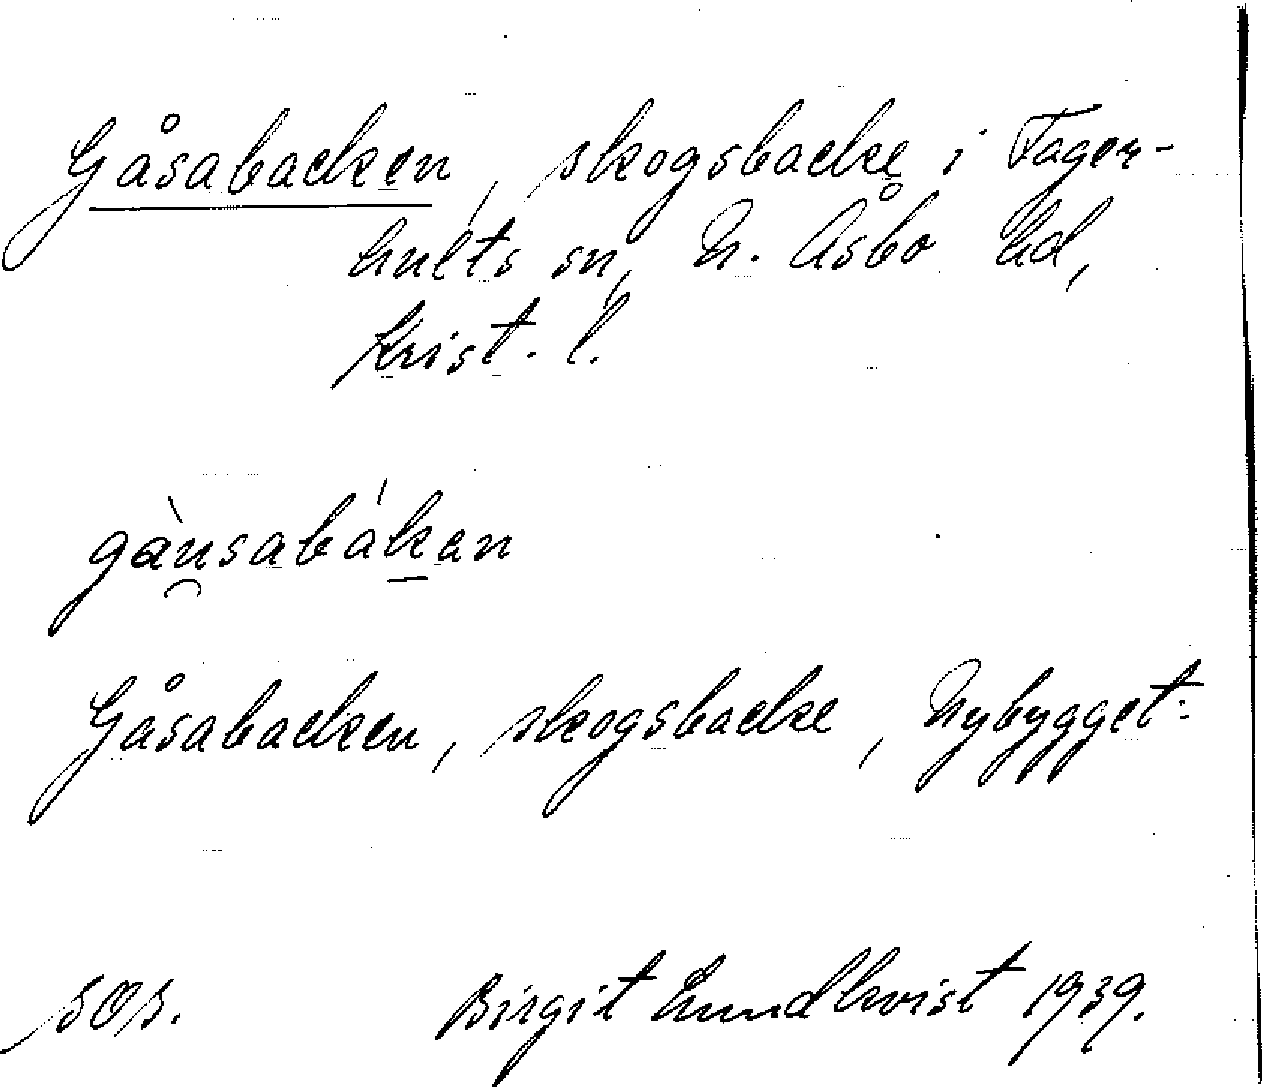 Gåsabacken, skogsbacke i Fager-
hults sn, N. Åsbo hd,
Krist. l.
gàu̯sabák̲an
Gåsabacken, skogsbacke, Nybygget.
SOS. Birgit Lundkvist 1939.